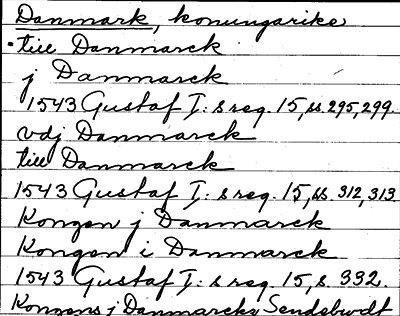 Danmark, konungarike
till Danmarck
j Danmarck
1543 Gustaf I:s reg. 15, ss. 295, 299.
vdj Danmarck
till Danmarck
1543 Gustaf I:s reg. 15, ss. 312, 313
Kongen j Danmarck
Kongen i Danmarck
1543 Gustaf I:s reg. 15, s. 332.
Kongens j Danmarcks Sendebudt